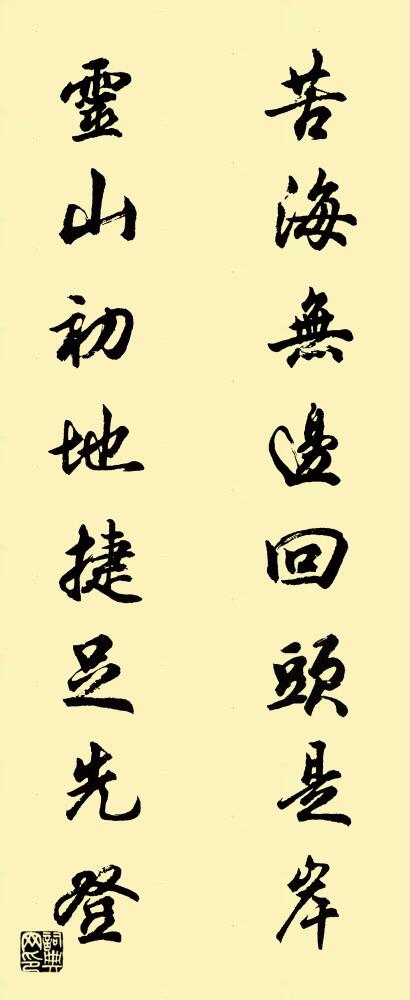 苦海無邊回頭是岸
靈山初地捷足先登
詞典网印